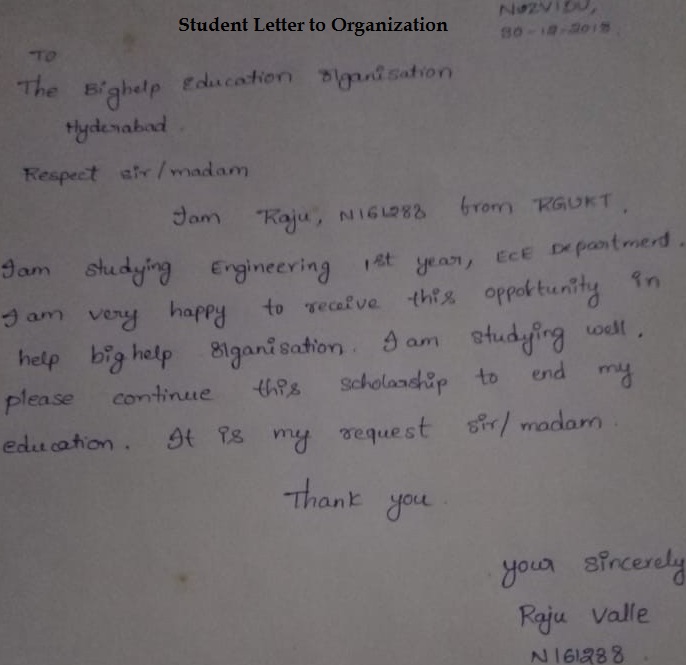 Student Letter to Organization
NUZVIDU,
30-12-2018.
TO
The Bighelp Education Organisation
Hyderabad.
Respect sir/madam
I am Raju, N161288 from RGUKT.
I am studying Engineering 1st year, ECE Department.
I am very happy to receive this opportunity in
help big help Organisation. I am studying well.
please continue this scholarship to end my
education. It is my request sir/madam.
Thank you.
your sincerely
Raju Valle
N161288.